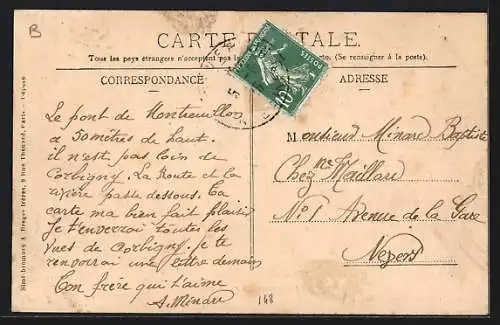 B
CARTE POSTALE.
Tous les pays étrangers n'acceptent pas (Se renseigner à la poste).
CORRESPONDANCE
ADRESSE
Le pont de Montreuillon
a 50 mètres de haut.
il n'est pas loin de
Corbigny. La Route et la
rivière passe dessous. Ta
carte ma bien fait plaisir
Je t'enverrai toutes les
vues de Corbigny. je te
renverrai une lettre demain
Ton frère qui t'aime
A. Minard
Monsieur Minard Baptiste
Chez Mr Maillau
No 1 Avenue de la Gare
Nevers
148